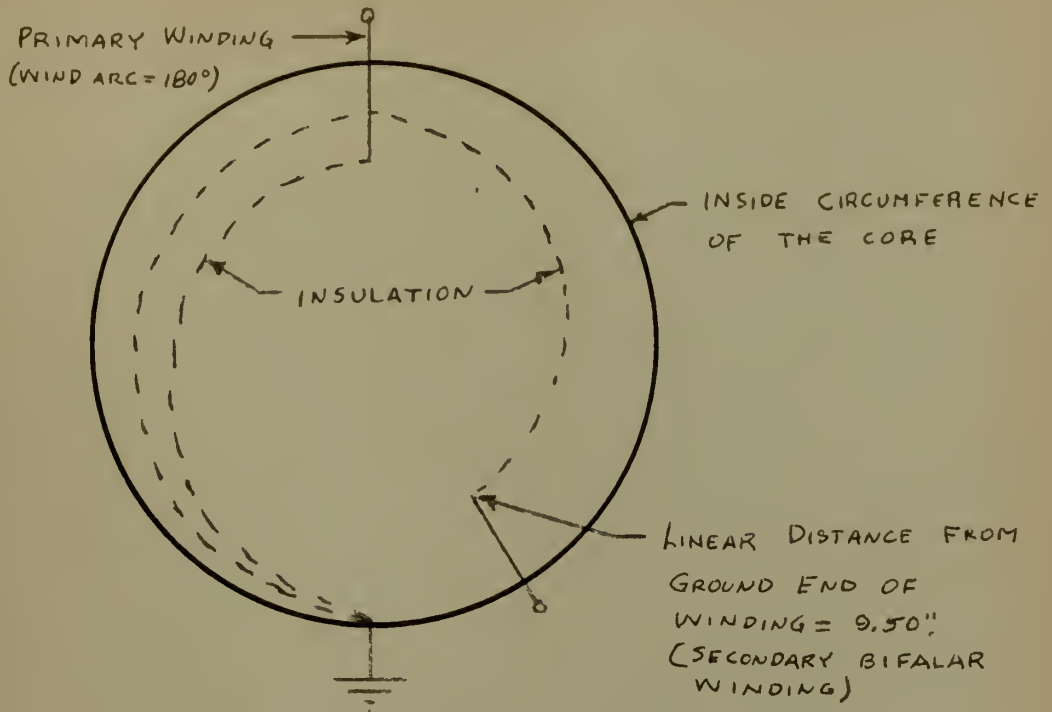 PRIMARY WINDING
(WIND ARC = 180°)
INSIDE CIRCUMFERENCE
OF THE CORE
INSULATION
LINEAR DISTANCE FROM
GROUND END OF
WINDING = 9.50".
(SECONDARY BIFALAR
WINDING)